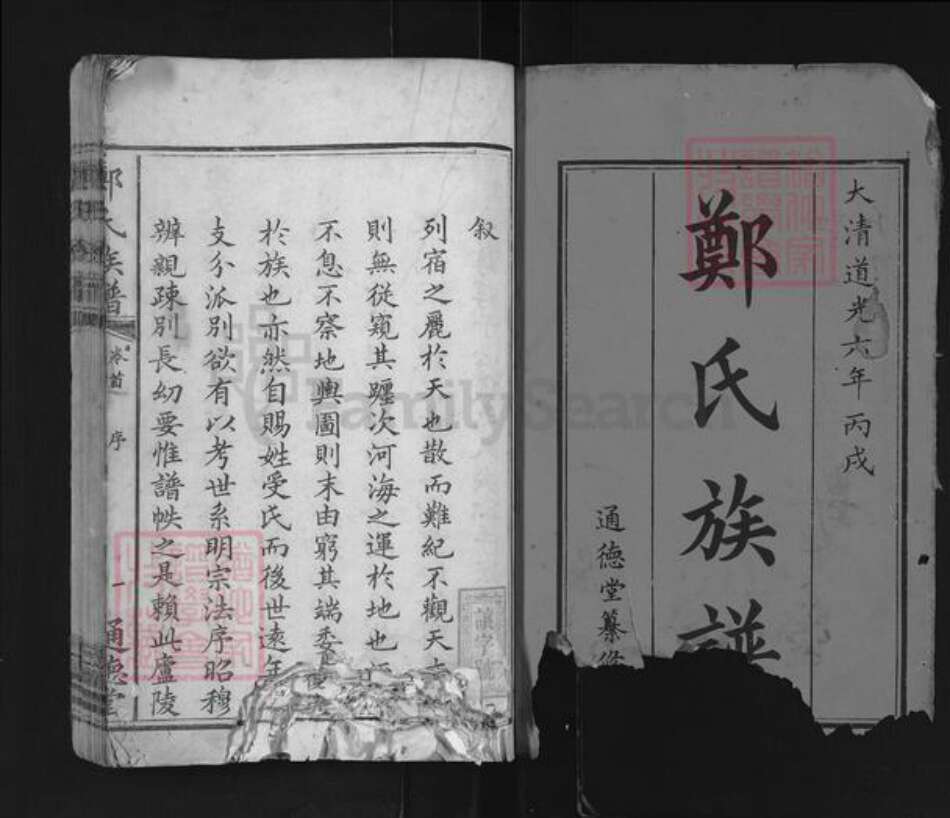 大清道光六年丙戌
鄭氏族譜
通德堂纂修
叙
列宿之麗於天也散而難紀不觀天
則無從窺其躔次河海之運於地也
不息不察地輿圖則末由窮其端委
於族也亦然自賜姓受氏而後世遠年
支分派別欲有以考世系明宗法序昭穆
辨親疎別長幼要惟譜帙之是賴此盧陵
鄭氏族譜
卷首
序
一
通德堂
FamilySearch